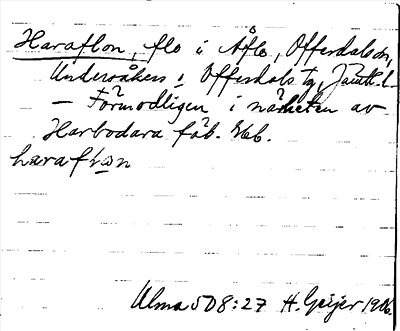 Haraflon, flo i Åflo, Offerdals sn,
Undersåkers, Offerdals tg, Jämtl. l.
— Förmodligen i närheten av
Harbodara fäb. Neb.
haraf
Ulma 508:27 H. Geijer 1906